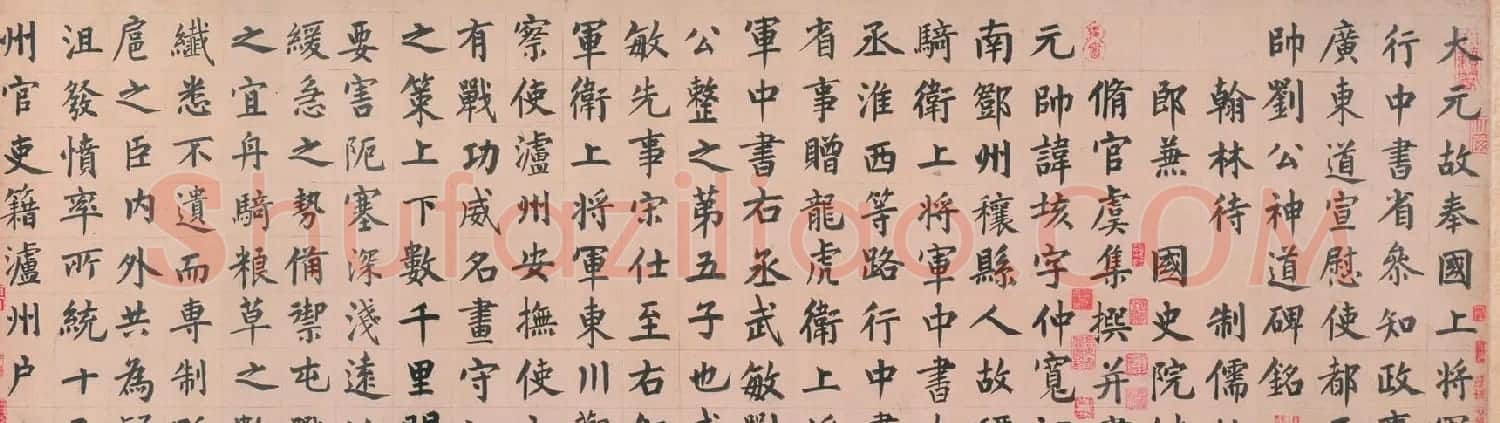 大元故奉國上將
行中書省叅知政
廣東道宣慰使都
帥劉公神道碑銘
翰林待制儒
郎兼國史院
脩官虞集撰并
元帥諱垓字仲寬
南鄧州穰縣人故
騎衛上將軍中書
丞淮西等路行中
省事贈龍虎衛上
軍中書右丞武敏
公整之苐五子也
敏先事宋仕至右
軍衛上將軍東川
察使瀘州安撫使
有戰功威名畫守
之策上下數千里
要害阨塞深淺遠
緩急之勢備禦屯
之宜舟騎粮草之
纖悉不遺而專制
扈之臣內外共為
沮發憤率所統十
州官吏籍瀘州户
Shufaziliao.COM